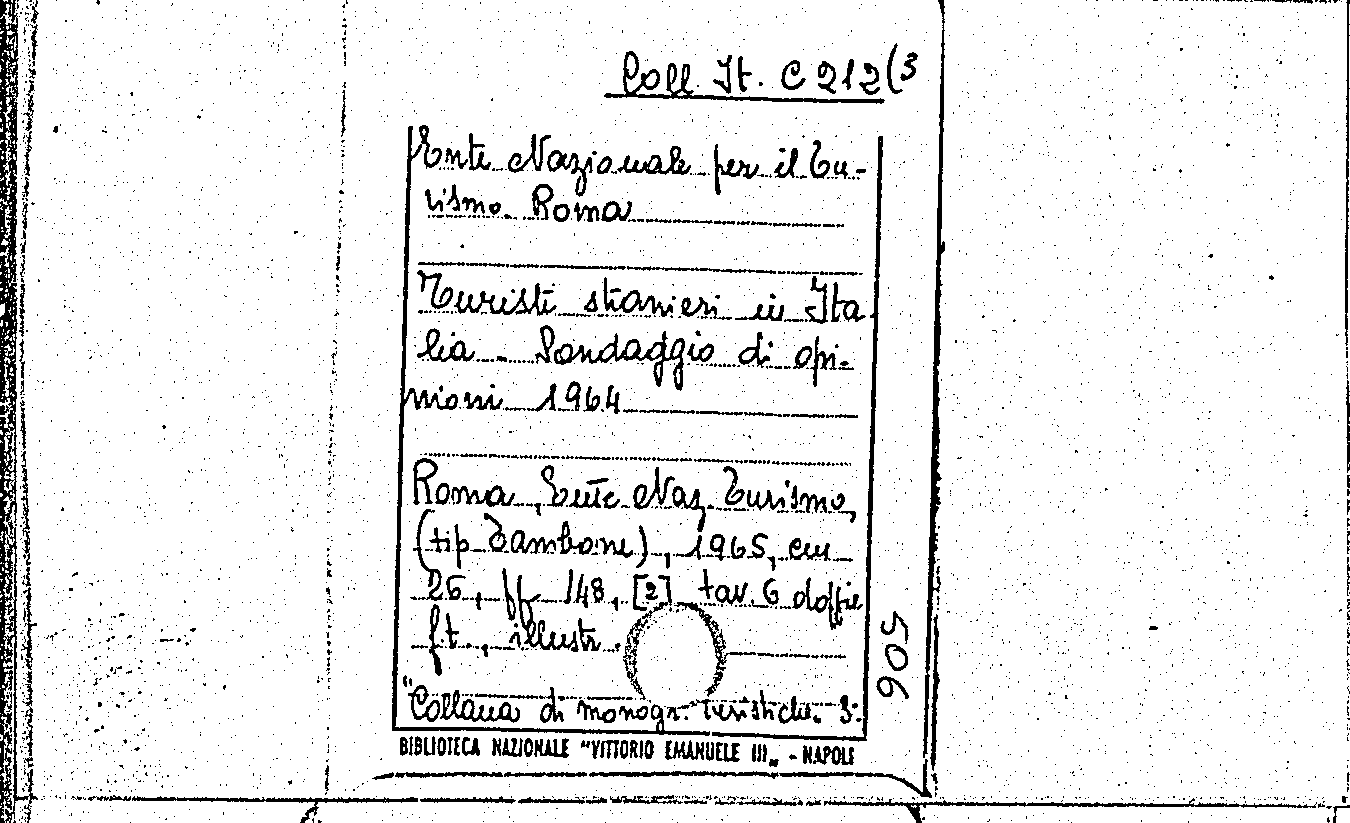 Coll. It. C 212(3
Ente Nazionale per il Tu-
rismo. Roma
Turisti stranieri in Ita
lia - Sondaggio di opi-
nioni 1964
Roma, Ente Naz. Turismo,
(tip Tambone), 1965, cm
26, ff 148, [2] tav. 6 doppie
f.t., illustr.
"Collana di monogr. turistiche. 3.
506
BIBLIOTECA NAZIONALE "VITTORIO EMANUELE III„ - NAPOLI